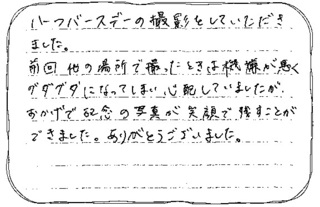 ハーフバースデーの撮影をしていただき
ました。
前回他の場所で撮ったときは機嫌が悪く
グダグダになってしまい心配していましたが、
おかげで記念の写真が笑顔で残すことが
できました。ありがとうございました。